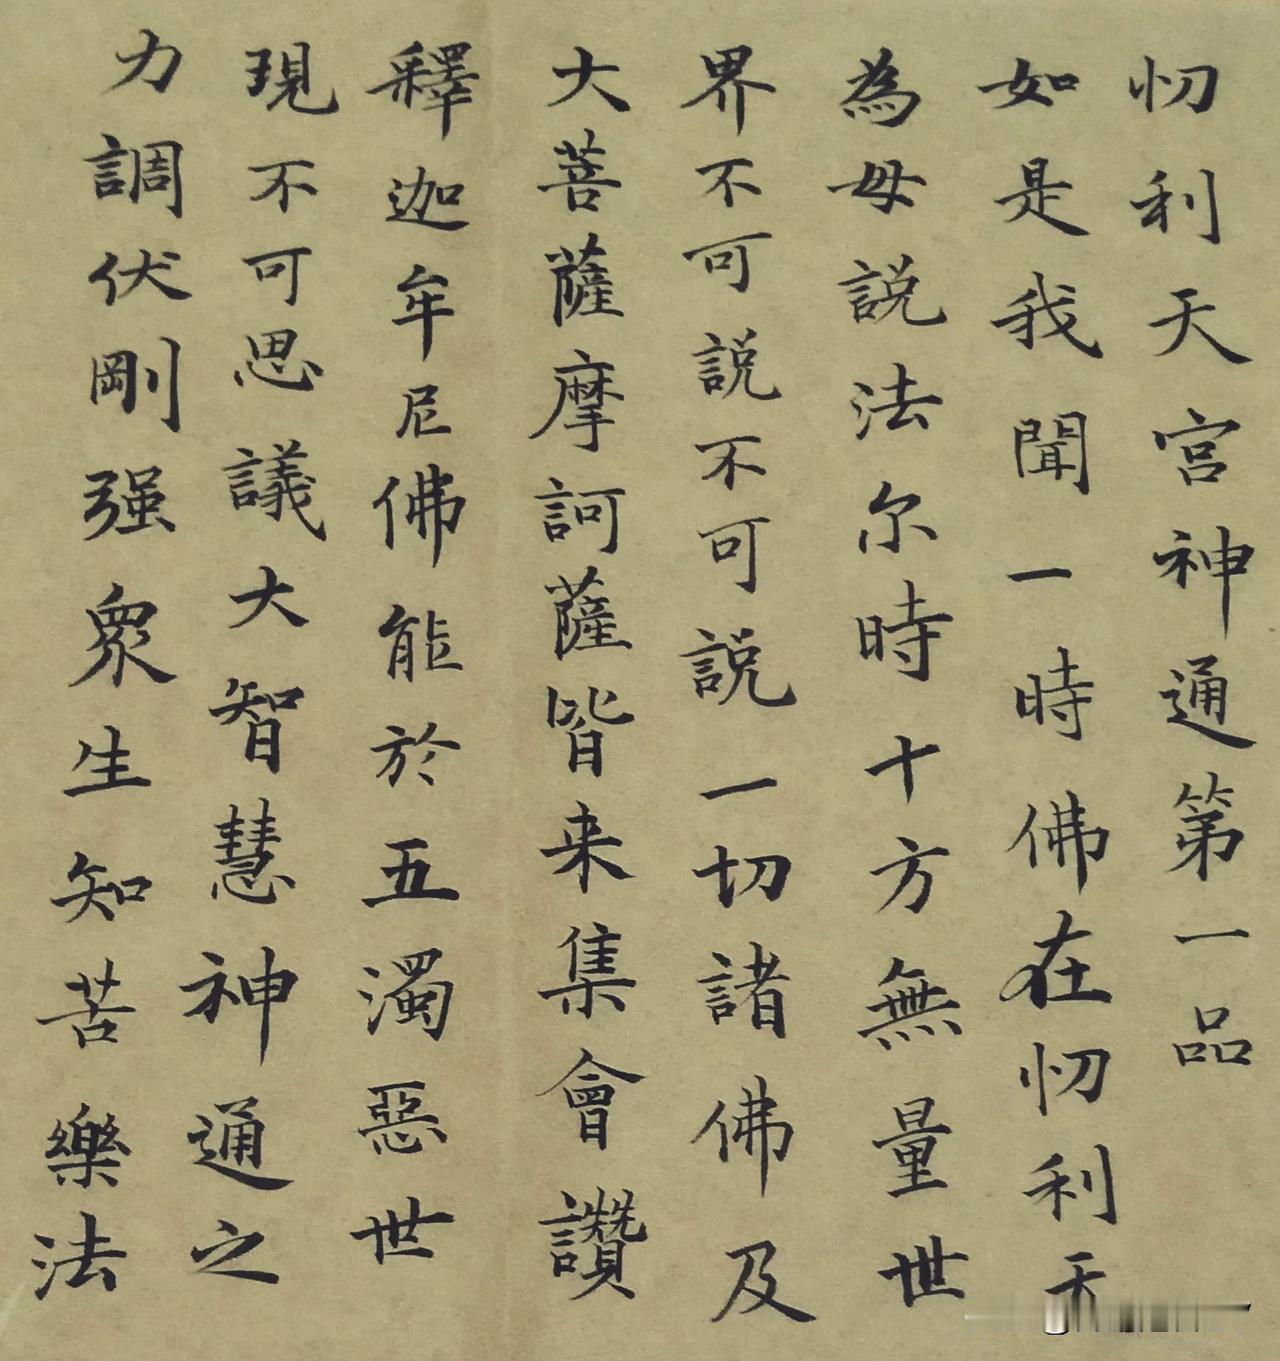 忉利天宮神通第一品
如是我聞一時佛在忉利天
為母說法尔時十方無量世
界不可說不可說一切諸佛及
大菩薩摩訶薩皆来集會讚
釋迦牟尼佛能於五濁惡世
現不可思議大智慧神通之
力調伏剛强衆生知苦樂法